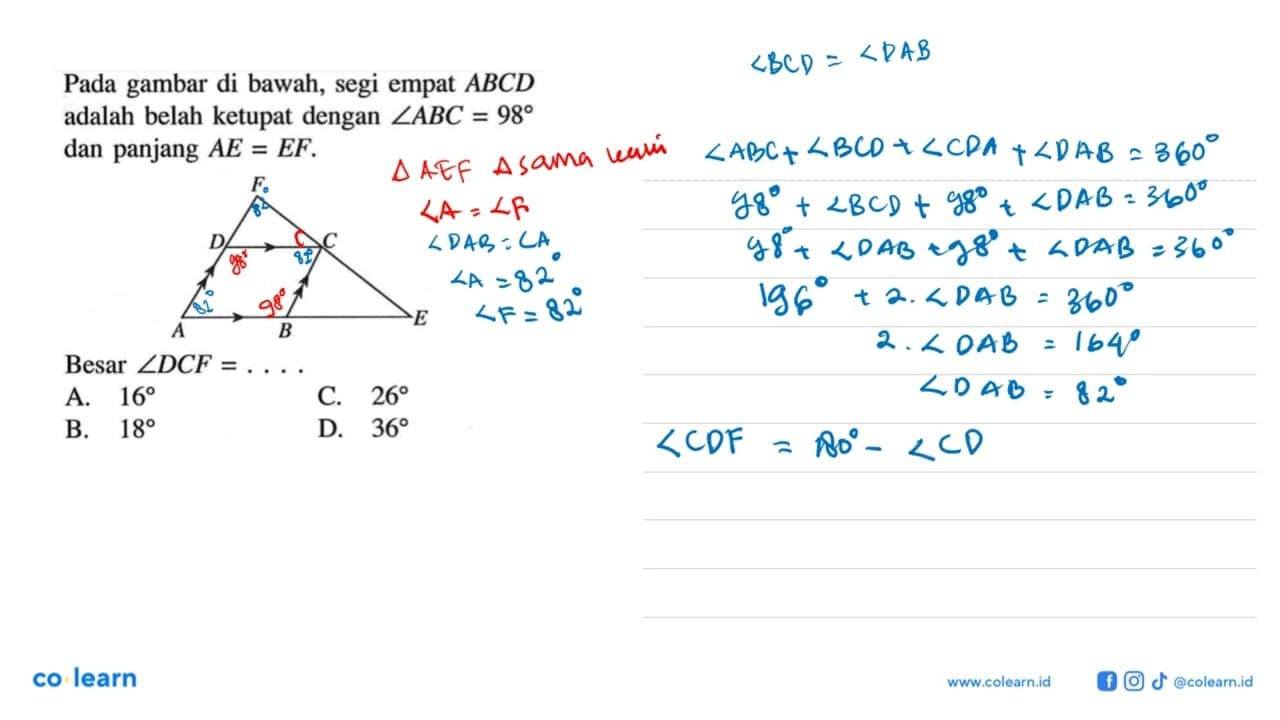 Pada gambar di bawah, segi empat ABCD
adalah belah ketupat dengan ∠ABC = 98°
dan panjang AE = EF.
F
82°
D
C
98°
82°
82°
98°
A
B
E
Besar ∠DCF = . . . .
A. 16°
C. 26°
B. 18°
D. 36°
Δ AEF Δ sama kaki
∠A = ∠F
∠DAB = ∠A
∠A = 82°
∠F = 82°
∠BCD = ∠DAB
∠ABC + ∠BCD + ∠CDA + ∠DAB = 360°
98° + ∠BCD + 98° + ∠DAB = 360°
98° + ∠DAB + 98° + ∠DAB = 360°
196° + 2. ∠DAB = 360°
2. ∠DAB = 164°
∠DAB = 82°
∠CDF = 180° - ∠CD
co learn
www.colearn.id
@colearn.id